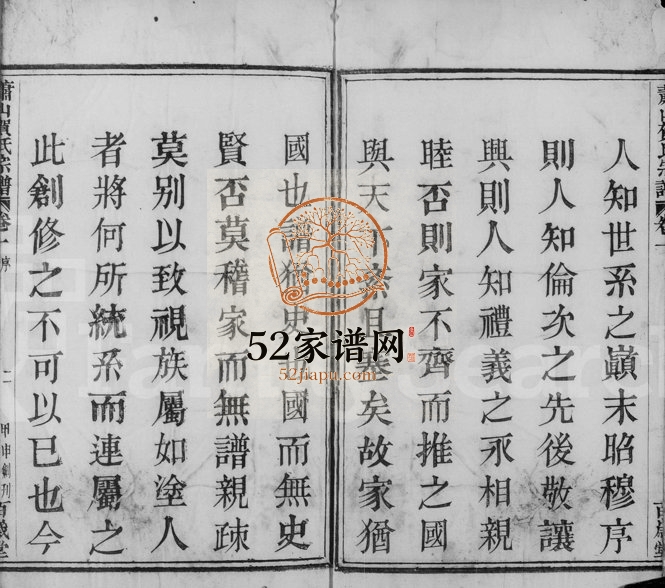 人知世系之巔末昭穆序
則人知倫次之先後敬讓
興則人知禮義之永相親
睦否則家不齊而推之國
與天下矣故家猶
國也譜猶史國而無史
賢否莫稽家而無譜親疎
莫别以致視族屬如塗人
者將何所統系而連屬之
此創修之不可以已也今
蕭山賀氏宗譜 卷一 序 二 甲申創刊 百歲堂
52家谱网
52jiapu.com